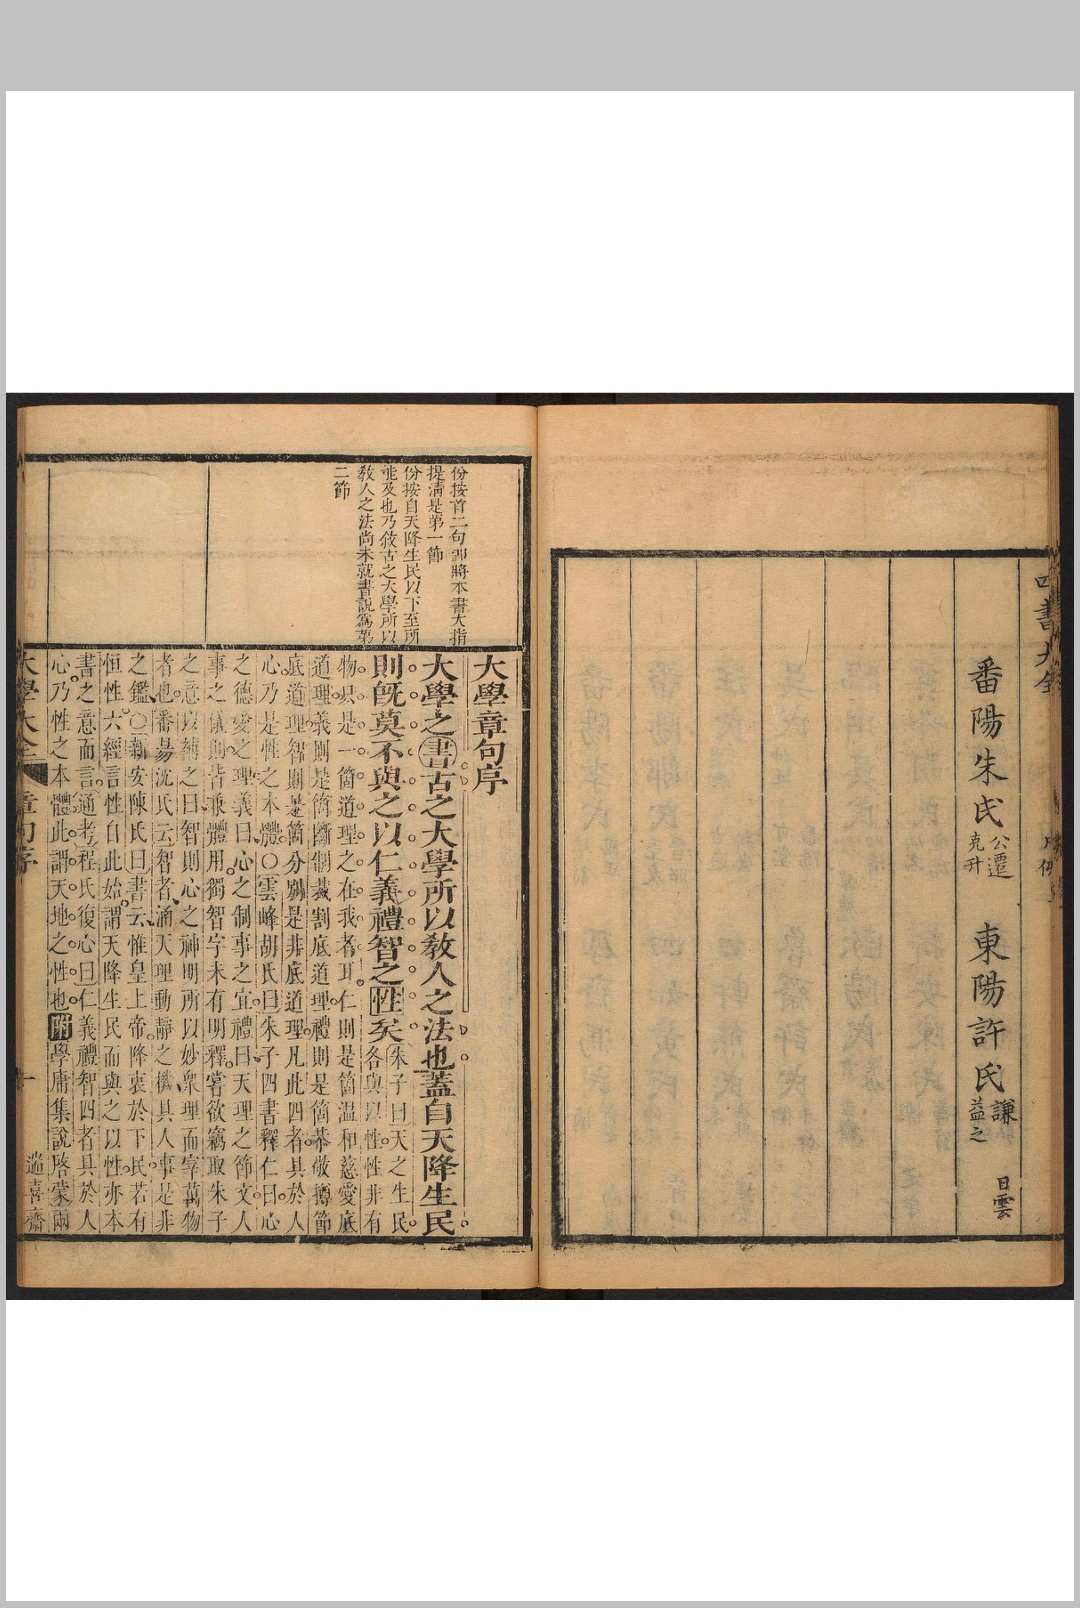 四書大全
番陽朱氏公遷克升
東陽許氏謙益之
白雲
份按首二句即將本書大指
提清是第一節
份按自天降生民以下至所
能及也乃敘古之大學所以
教人之法尚未就書說為第
二節
大學章句序
大學之書古之大學所以教人之法也蓋自天降生民
則既莫不與之以仁義禮智之性矣朱子曰天之生民各與以性性非有
物只是一箇道理之在我者耳仁則是箇温和慈愛底
道理義則是箇斷制裁割底道理禮則是箇恭敬撙節
底道理智則是箇分別是非底道理凡此四者具於人
心乃是性之本體○雲峰胡氏曰朱子四書釋仁曰心
之德愛之理義曰心之制事之宜禮曰天理之節文人
事之儀則皆兼體用獨智字未有明釋嘗欲竊取朱子
之意以補之曰智則心之神明所以妙衆理而宰萬物
者也番昜沈氏云智者涵天理動靜之機具人事是非
之鑑○新安陳氏曰書云惟皇上帝降衷於下民若有
恒性六經言性自此始謂天降生民而與之以性亦本
書之意而言通考程氏復心曰仁義禮智四者具於人
心乃性之本體此謂天地之性也附學庸集說啓蒙兩
大學大全 章句序 一 遄喜齋